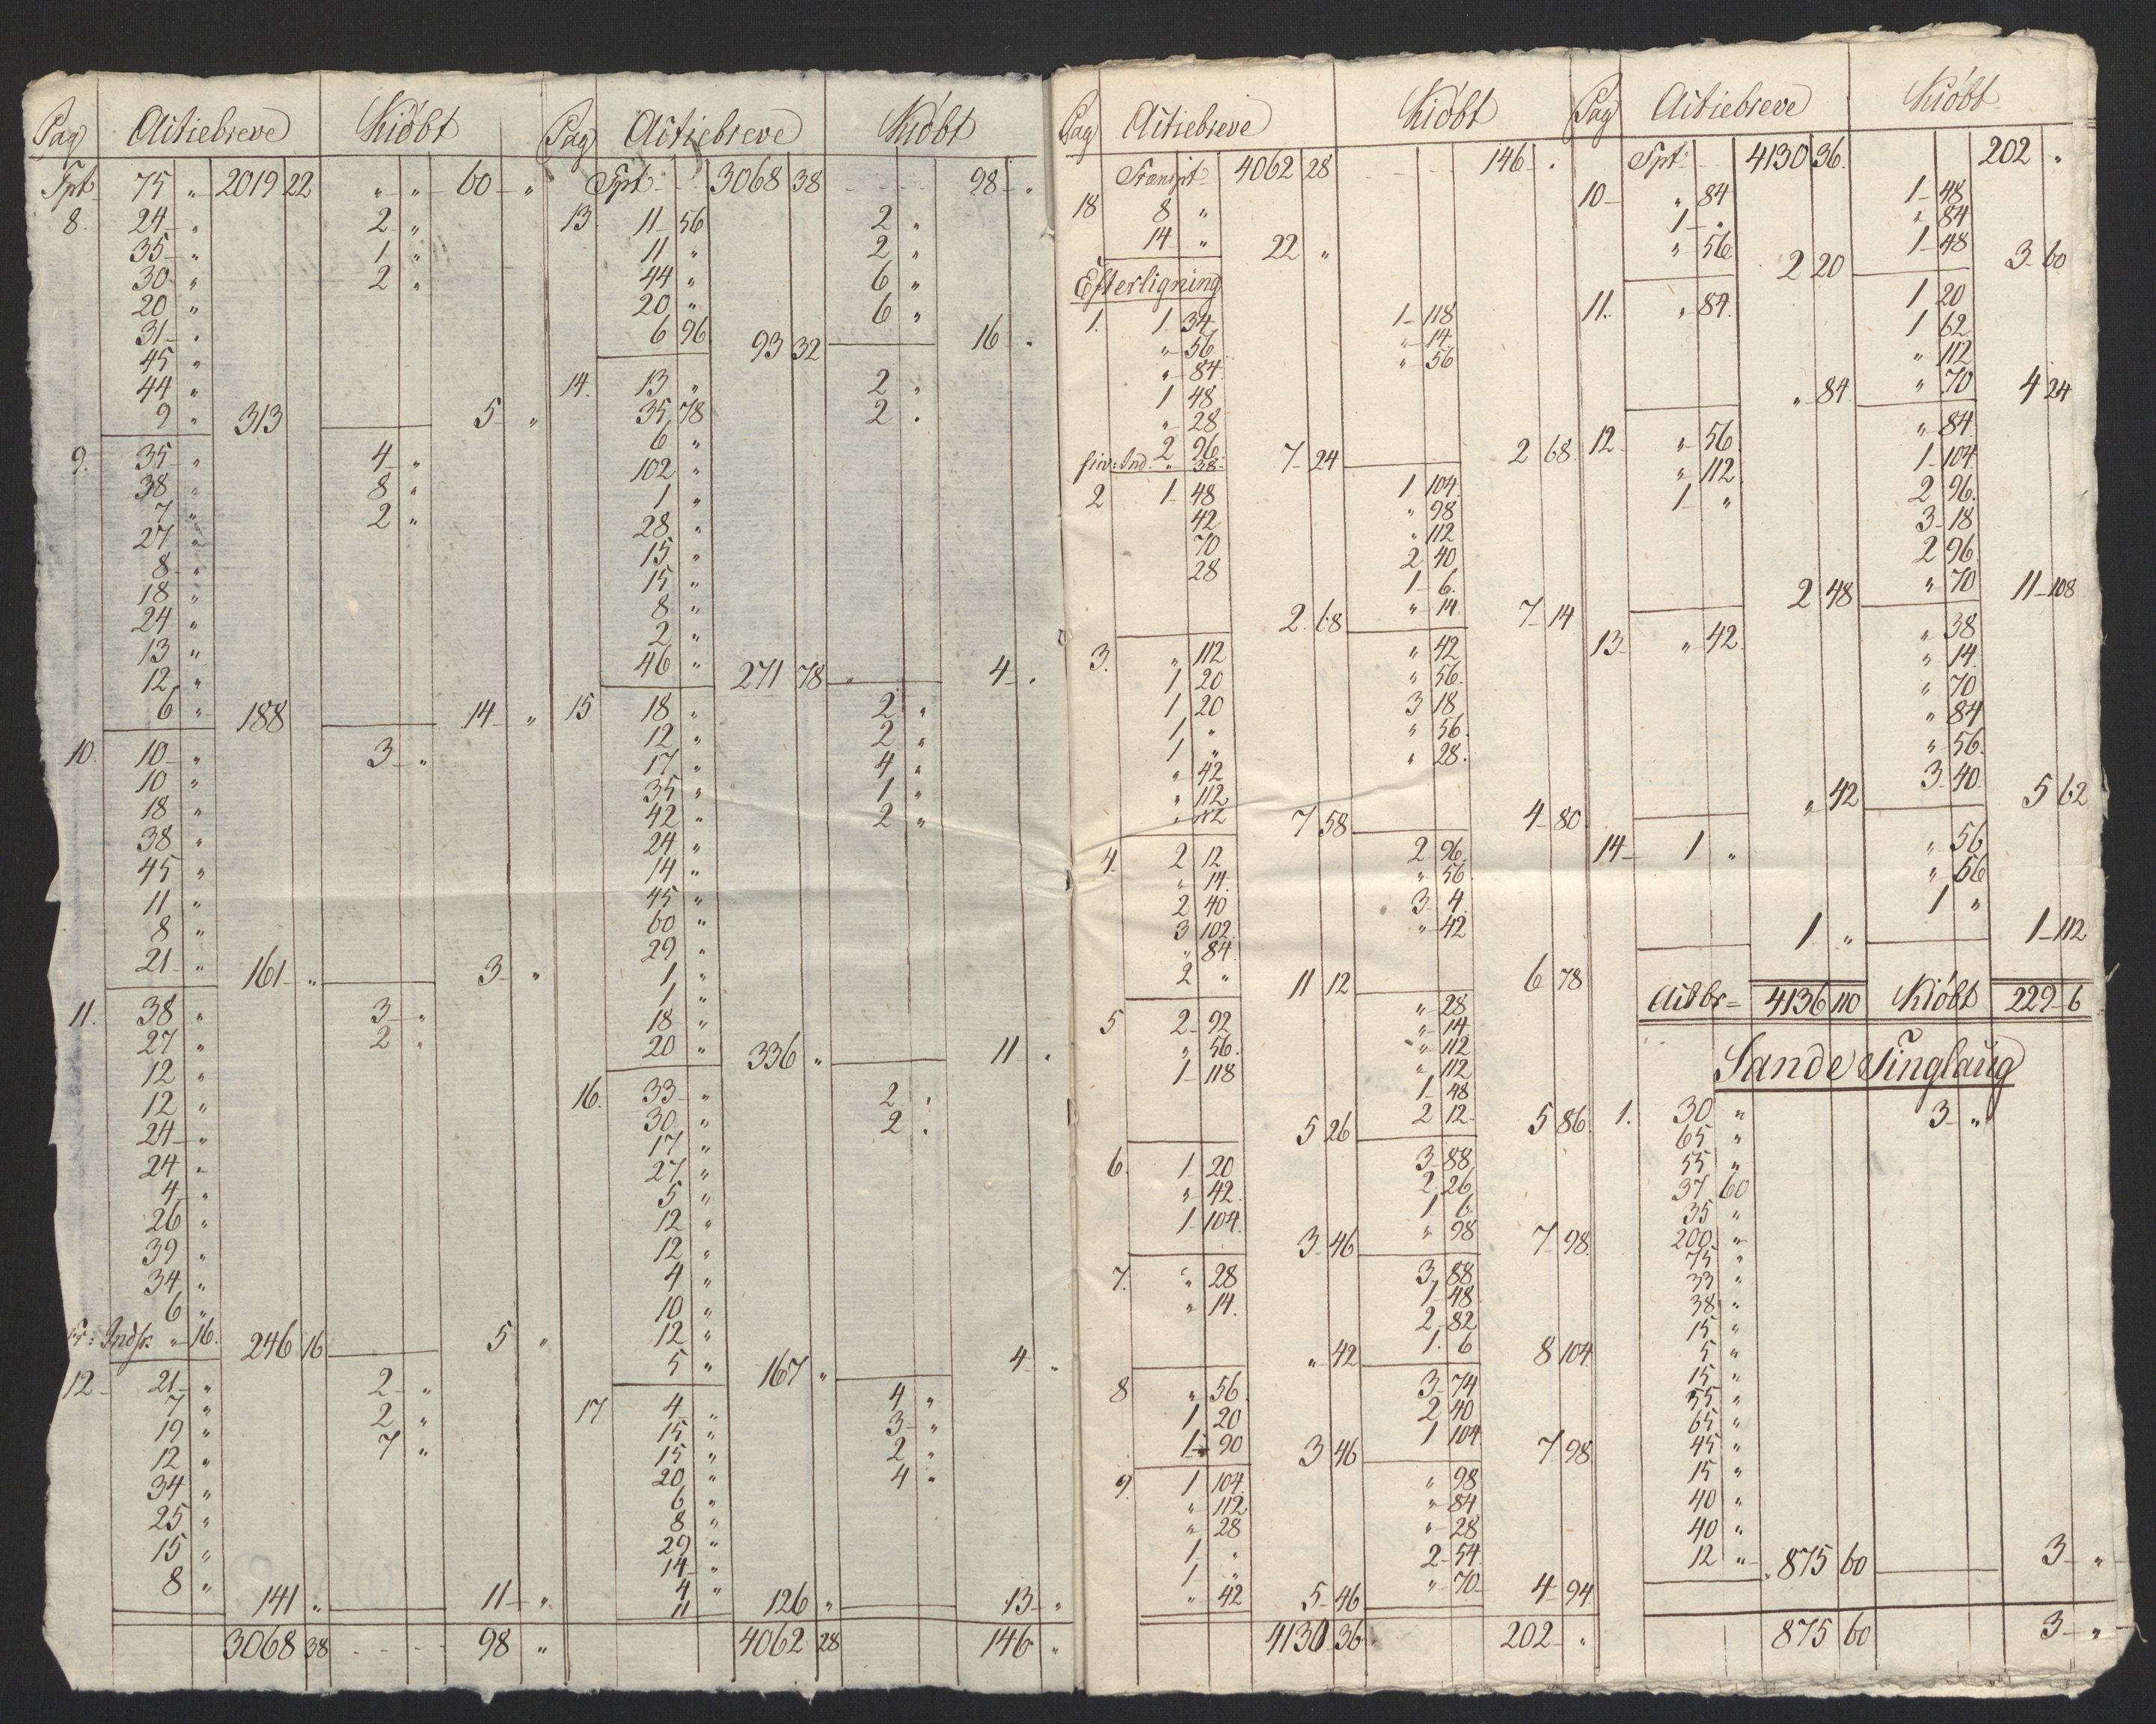 Pag Actiebreve Kiöbt
Tpt 75 " 2019 22 " " 60 "
8. 24 " 2 "
35 " 1 "
30 " 2 "
20 "
31 "
45 "
44 "
9 " 313 5 "
9. 35 " 4 "
38 " 8 "
7 " 2 "
27 "
8 "
18 "
24 "
13 "
12 "
6 " 188 14 "
10. 10 " 3 "
10 "
18 "
38 "
45 "
11 "
8 "
21 " 161 " 3 "
11. 38 " 3 "
27 " 2 "
12 "
12 "
24 "
24 "
4 "
26 "
39 "
34 "
6 "
Indsk: " 16. 246 16 5 "
12 21 " 2 "
7 " 2 "
19 " 7 "
12 "
34 "
25 "
15 "
8 " 141 " 11 "
3068 38 98 "
Pag Actiebreve Kiöbt
Tpt 3068 38 98 "
13. 11 56 2 "
11 " 2 "
44 " 6 "
20 " 6 "
6 96 93 32 16 "
14. 13 " 2 "
35 78 2 "
6 "
102 "
1 "
28 "
15 "
15 "
8 "
2 "
46 " 271 78 4 "
15 18 " 2 "
12 " 2 "
17 " 4 "
35 " 1 "
42 " 2 "
24 "
14 "
45 "
60 "
29 "
1 "
1 "
18 "
20 " 336 " 11 "
16. 33 " 2 "
30 " 2 "
17 "
27 "
5 "
12 "
12 "
4 "
10 "
12 "
5 " 167 " 4 "
17 4 " 4 "
15 " 3 "
15 " 2 "
20 " 4 "
6 "
8 "
29 "
14 "
4 "
11 126 " 13 "
4062 28 146 "
Pag Actiebreve Kiöbt
Transpt 4062 28 146 "
18 8 "
14 " 22 "
Efterligning
1. 1 34 1 118
" 56 " 14
" 84 " 56
1 48
" 28
2 96
Ind. " 38 7 24 2 68
2 1 48 1 104
42 " 98
70 " 112
28 2 40
1 6
2 68 " 14 7 14
3. " 112 " 42
1 20 " 56
1 20 3 18
1 " " 56
1 " " 28
" 42
" 112
" 112 7 58 4 80
4. 2 12 2 96
" 14 " 56
2 40 3 4
3 102 " 42
" 84
2 " 11 12 6 78
5 2 92 " 28
" 56 " 14
1 118 " 112
" 112
1 48
5 26 2 12 5 86
6. 1 20 3 88
" 42 2 26
1 104 1 6
3 46 " 98 7 98
7. " 28 3 88
" 14 1 48
2 82
" 42 1 6 8 104
8 " 56 3 74
1 20 2 40
1 90 3 46 1 104 7 98
9. 1 104 " 98
" 112 " 84
" 28 " 28
1 " 2 54
1 " " 70
" 42 5 46 4 94
4130 36 202 "
Pag Actiebreve Kiöbt
Tpt 4130 36 202 "
10 " 84 1 48
1 " " 84
" 56 2 20 1 48 3 60
11. " 84 1 20
1 62
" 112
" 84 " 70 4 24
12 " 56 " 84
" 112 1 104
1 " 2 96
3 18
2 96
2 48 " 70 11 108
13 " 42 " 38
" 14
" 70
" 84
" 56
" 42 3 40 5 62
14 1 " " 56
" 56
1 "
1 " 1 112
Actbr= 4136 110 Kiöbt 229 6
Sande Tinglaug
1. 30 " 3 "
65 "
55 "
37 60
35 "
200 "
75 "
33 "
38 "
15 "
5 "
15 "
55 "
65 "
45 "
15 "
40 "
40 "
12 " 875 60 3 "
875 60 3 "